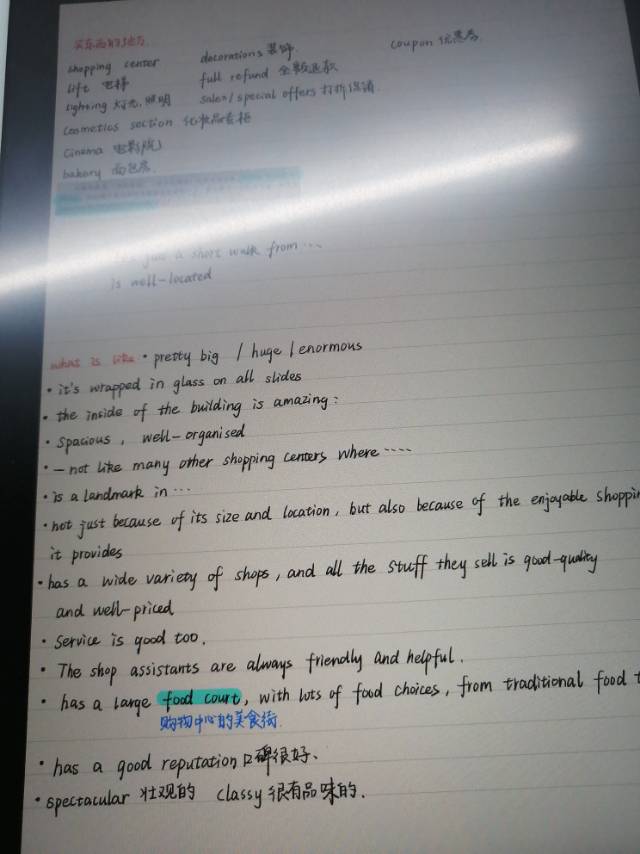 买东西的地方
shopping center decorations 装饰 coupon 优惠券
lift 电梯 full refund 全额退款
lighting 灯光,照明 sales/special offers 打折促销
cosmetics section 化妆品专柜
cinema 电影院
bakery 面包房
just a short walk from ...
is well-located
what is like · pretty big / huge / enormous
· it's wrapped in glass on all slides
· the inside of the building is amazing:
· Spacious, well-organised
· — not like many other shopping centers, where ....
· is a landmark in ...
· not just because of its size and location, but also because of the enjoyable shoppin
it provides
· has a wide variety of shops, and all the stuff they sell is good-quality
and well-priced
· Service is good too.
· The shop assistants are always friendly and helpful.
· has a large food court, with lots of food choices, from traditional food t
购物中心的美食街
· has a good reputation 口碑很好、
· spectacular 壮观的 classy 很有品味的.